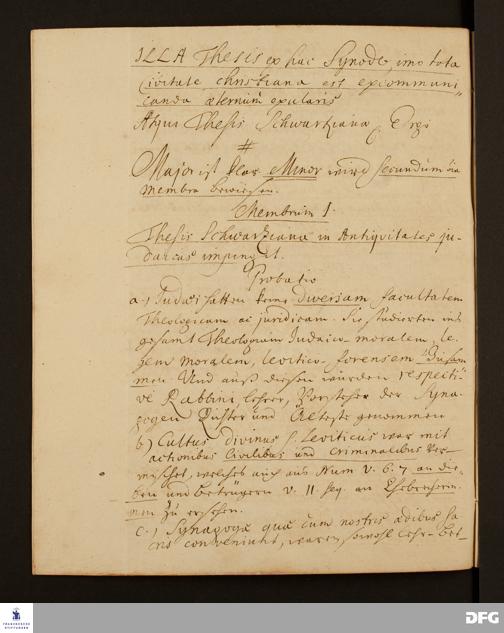 ILLA Thesis ex hac Synodo, imo tota
Civitate christiana est excommuni-
canda æternum exularis
Atqui Thesis Schwartziana p Ergo
#
Major ist klar Minor wird secundum
membra bewiesen.
Membrum I.
Thesis Schwartziana in Antiquitates ju-
daicas impingit.
Probatio
a.) Judæi hatten keine diversam facultatem
Theologicam ac juridicam. Sie studierten ins
gesamt Theologiam Judaico-moralem, le-
gem moralem, levitico-forensem zusam-
men. Und auß diesen wurden respecti-
ve Rabbini, Lehrer, Vorsteher der Syna-
gogen Richter und Älteste genommen
b) Cultus divinus s. Leviticus war mit
actionibus Civilibus und criminalibus ver-
mischet, welches auch aus Num V. 6. 7 an die-
ben und betrügern v. 11 seq. an Ehebrecherin-
nen zu ersehen.
c.) Synagogæ quæ cum nostris ædibus sa-
cris conveniunt, waren sowohl Lehr- bet-
FRANCKESCHE
STIFTUNGEN
DFG